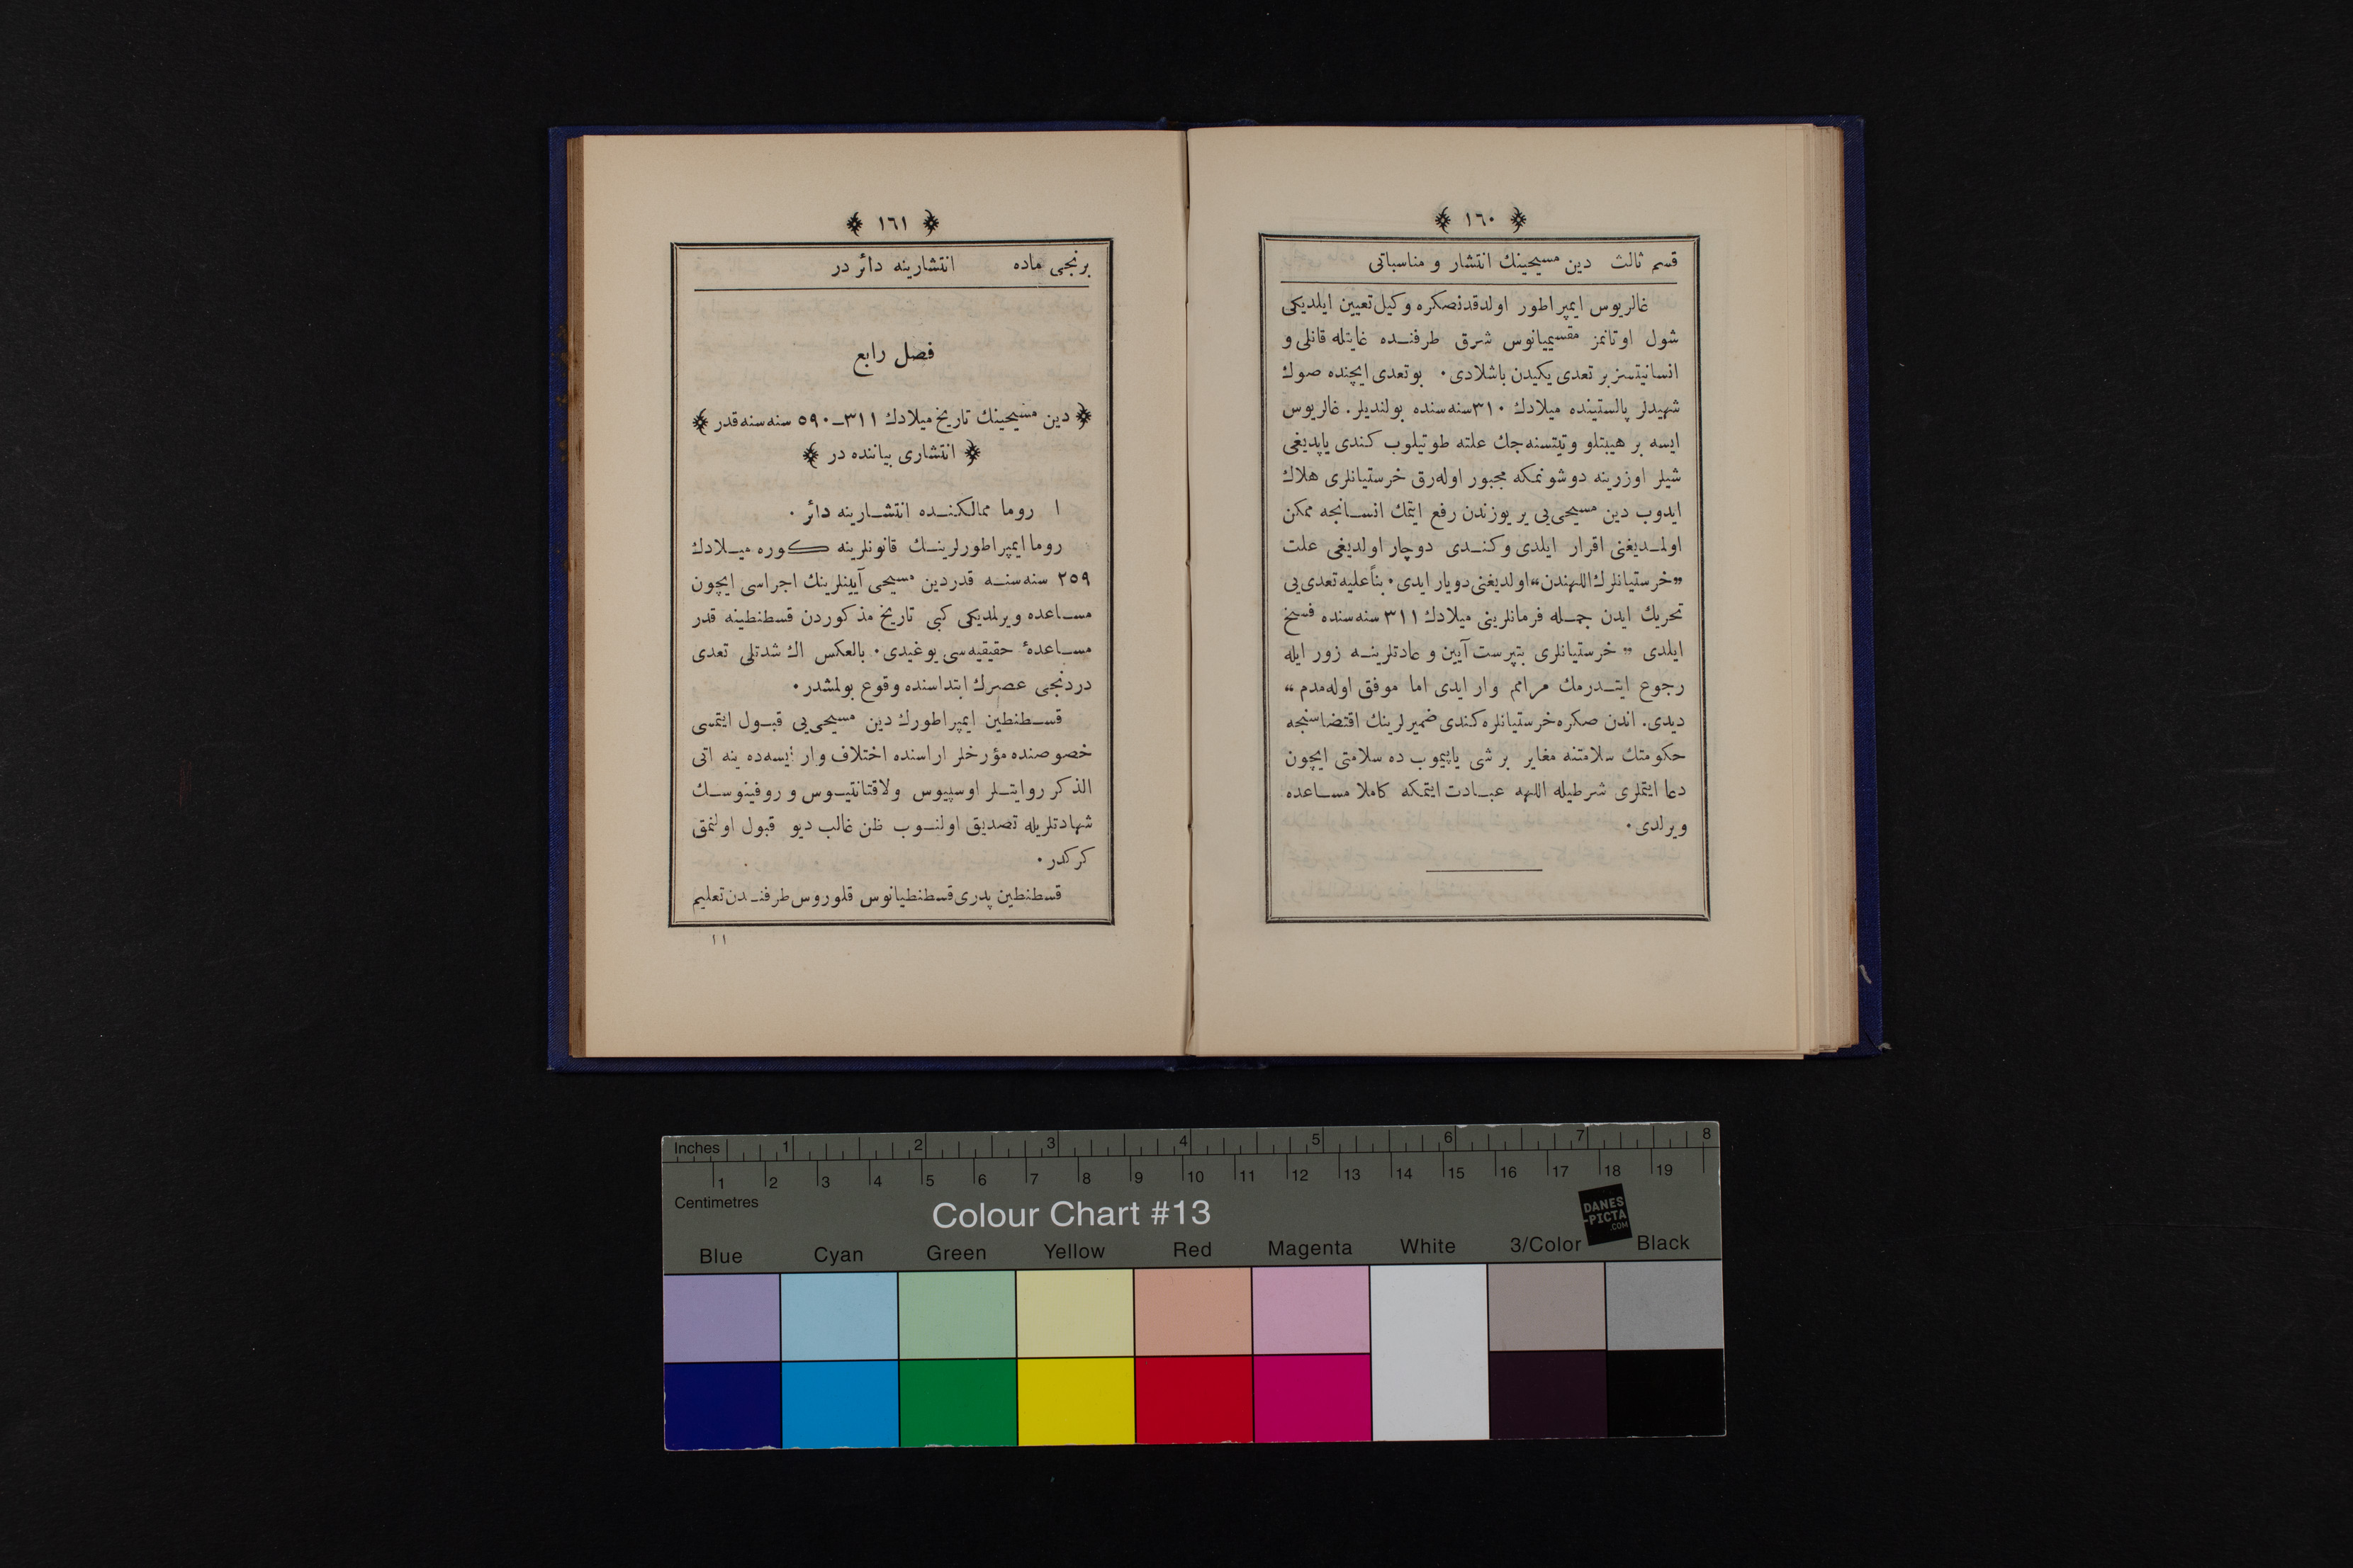 ١٦٠
قسم ثالث دين مسيحينك انتشار و مناسباتى
غالريوس ايمپراطور اولدقدنصكره وكيل تعيين ايلديكى
شول اوتانمز مقسيميانوس شرق طرفنده غايتله قانلى و
انسانيتسز بر تعدى يكيدن باشلادى٠ بو تعدى ايچنده صوك
شهيدلر پالستينده ميلادك ٣١٠ سنه سنده بولنديلر. غالريوس
ايسه بر هيبتلو و تيتسنه جك علته طوتيلوب كندى ياپديغى
شيلر اوزرينه دوشونمكه مجبور اوله رق خرستيانلرى هلاك
ايدوب دين مسيحى يى ير يوزندن رفع ايتمك انسانجه ممكن
اولمديغنى اقرار ايلدى و كندى دوچار اولديغى علت
„خرستيانلرك اللهندن“ اولديغنى دويار ايدى٠ بناً عليه تعدى يى
تحريك ايدن جمله فرمانلرينى ميلادك ٣١١ سنه سنده فسخ
ايلدى „ خرستيانلرى بتپرست آيين و عادتلرينه زور ايله
رجوع ايتدرمك مرامم وار ايدى اما موفق اوله مدم “
ديدى. اندن صكره خرستيانلره كندى ضميرلرينك اقتضاسنجه
حكومتك سلامتنه مغاير بر شى ياپميوب ده سلامتى ايچون
دعا ايتملرى شرطيله اللهه عبادت ايتمكه كاملا مساعده
ويرلدى٠
١٦١
برنجى ماده انتشارينه دائر در
فصل رابع
دين مسيحينك تاريخ ميلادك ٣١١–٥٩٠ سنه سنه قدر
انتشارى بياننده در
١ روما ممالكنده انتشارينه دائر٠
روما ايمپراطورلرينك قانونلرينه كوره ميلادك
٢٥٩ سنه سنه قدر دين مسيحى آيينلرينك اجراسى ايچون
مساعده ويرلمديكى كبى تاريخ مذكوردن قسطنطينه قدر
مساعدهٔ حقيقيه سى يوغيدى٠ بالعكس اك شدتلى تعدى
دردنجى عصرك ابتداسنده وقوع بولمشدر٠
قسطنطين ايمپراطورك دين مسيحى يى قبول ايتمسى
خصوصنده مؤرخلر اراسنده اختلاف وار ايسه ده ينه اتى
الذكر روايتلر اوسپيوس ولاقتانتيوس و روفينوسك
شهادتلريله تصديق اولنوب ظن غالب ديو قبول اولنمق
كركدر٠
قسطنطين پدرى قسطنطيانوس قلوروس طرفندن تعليم
١١
Inches 1 2 3 4 5 6 7 8
1 2 3 4 5 6 7 8 9 10 11 12 13 14 15 16 17 18 19
Centimetres
Colour Chart #13
DANES
-PICTA
.COM
Blue Cyan Green Yellow Red Magenta White 3/Color Black